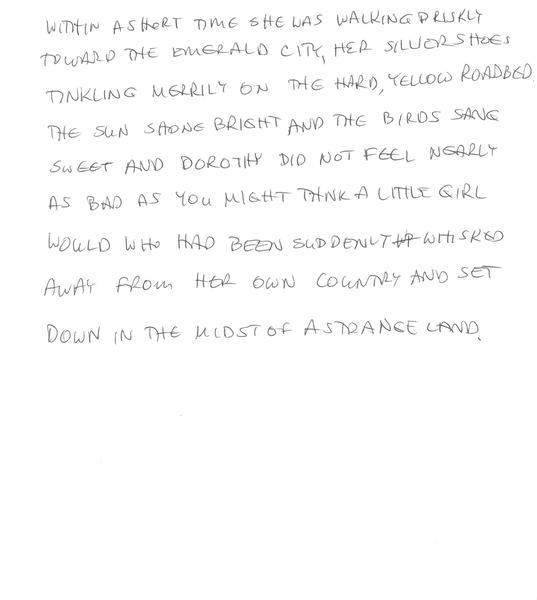 WITHIN A SHORT TIME SHE WAS WALKING BRISKLY
TOWARD THE EMERALD CITY, HER SILVER SHOES
TINKLING MERRILY ON THE HARD, YELLOW ROADBED.
THE SUN SHONE BRIGHT AND THE BIRDS SANG
SWEET AND DOROTHY DID NOT FEEL NEARLY
AS BAD AS YOU MIGHT THINK A LITTLE GIRL
WOULD WHO HAD BEEN SUDDENLY WHISKED
AWAY FROM HER OWN COUNTRY AND SET
DOWN IN THE MIDST OF A STRANGE LAND.